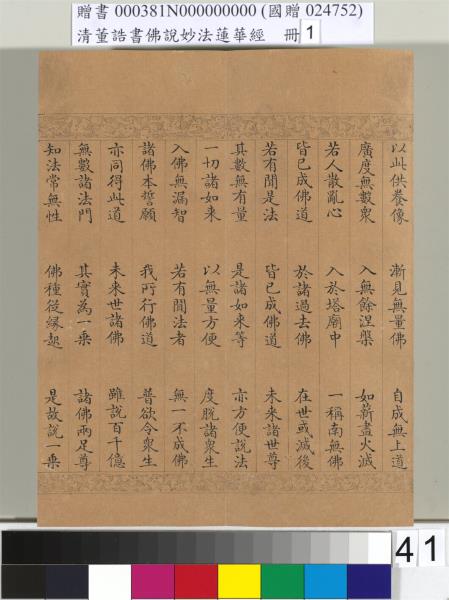 贈書 000381N000000000 (國贈 024752)
清董誥書佛說妙法蓮華經 冊 1
以此供養像 漸見無量佛 自成無上道
廣度無數眾 入無餘涅槃 如薪盡火滅
若人散亂心 入於塔廟中 一稱南無佛
皆已成佛道 於諸過去佛 在世或滅後
若有聞是法 皆已成佛道 未來諸世尊
其數無有量 是諸如來等 亦方便說法
一切諸如來 以無量方便 度脫諸眾生
入佛無漏智 若有聞法者 無一不成佛
諸佛本誓願 我所行佛道 普欲令眾生
亦同得此道 未來世諸佛 雖說百千億
無數諸法門 其實為一乘 諸佛兩足尊
知法常無性 佛種從緣起 是故說一乘
41